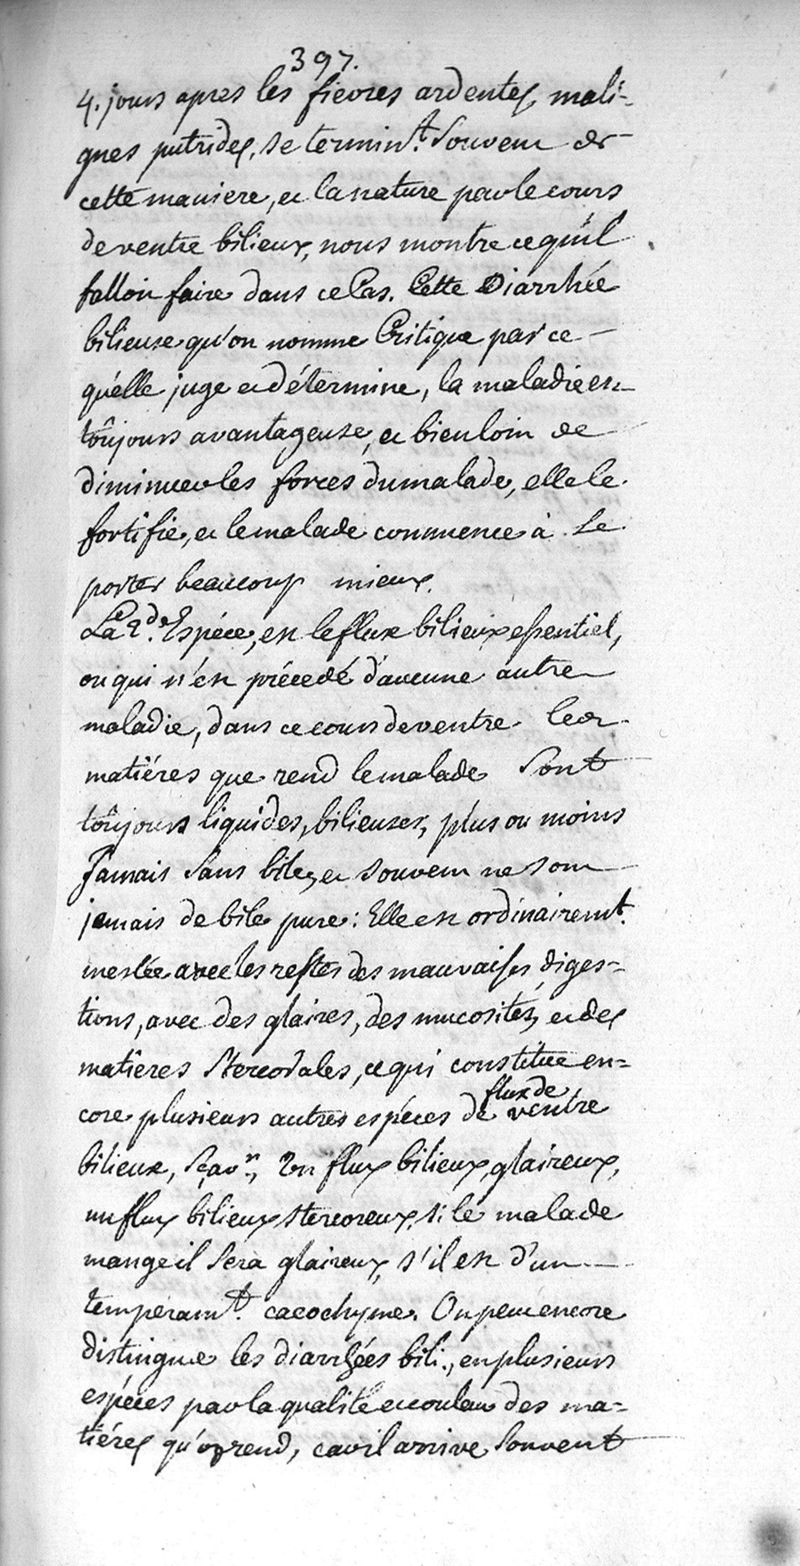 397.
4. jours apres les fievres ardentes, mali-
gnes putrides, se termint. Souvent de
cette maniere, et la nature par le cours
de ventre bilieux, nous montre ce qu'il
falloit faire dans ce Cas. Cette Diarrhée
bilieuse qu'on nomme Critique par ce
qu'elle juge et détermine, la maladie est
toûjours avantageuse, et bien loin de
diminuer les forces du malade, elle le
fortifie, et le malade commence à Se
porter beaucoup mieux.
La 2de. Espéce, est le flux bilieux essentiel,
ou qui n'est précedé d'aucune autre
maladie, dans ce cours de ventre les
matiéres que rend le malade Sont
toûjours liquides, bilieuses, plus ou moins
Jamais Sans bile, et Souvent ne sont
jamais de bile pure: Elle est ordinairemt.
meslée avec les restes des mauvaises diges-
tions, avec des glaires, des mucosités, et des
matières Stercorales, ce qui constitue en-
core plusieurs autres espéces de flux de ventre
bilieux, Sçavr., Un flux bilieux glaireux,
un flux bilieux stercoreux, si le malade
mange il Sera glaireux, s'il est d'un
temperamt. cacochyme. On peut encore
distinguer les diarrhées bili., en plusieurs
espéces par la qualité et couleur des ma-
tiéres qu'on rend, car il arrive Souvent